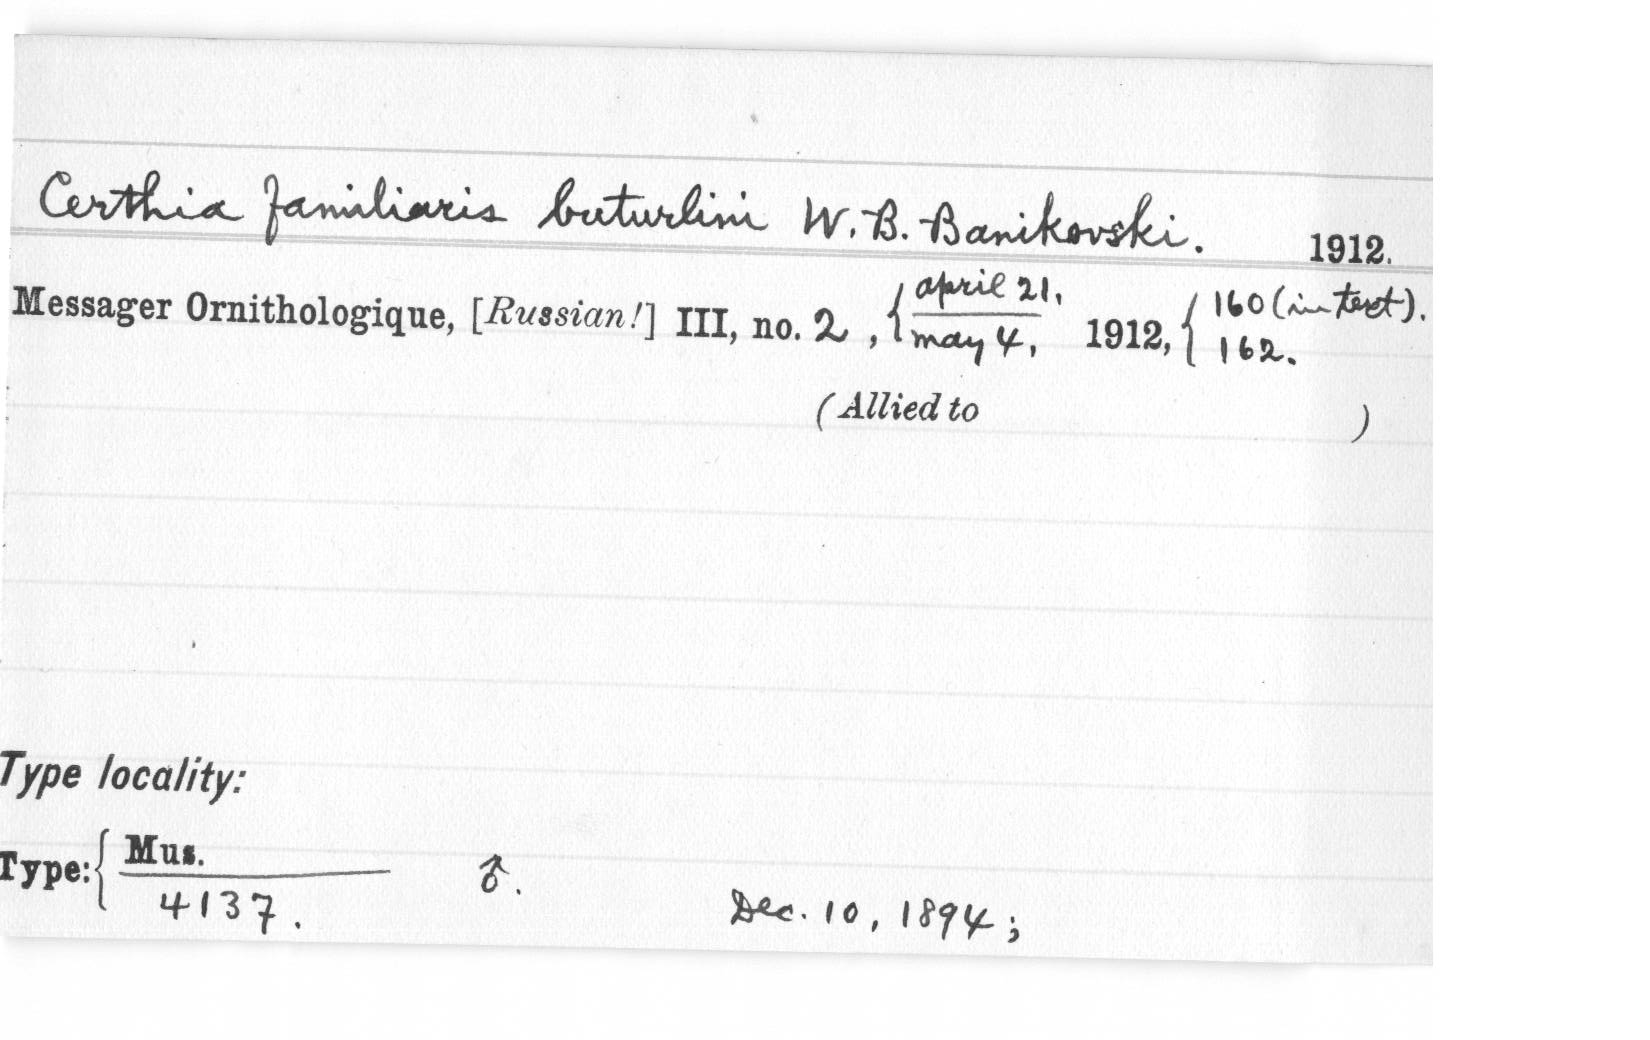 Certhia familiaris buturlini W. B. Banikovski. 1912.
Messager Ornithologique, [Russian!] III, no. 2, { april 21, / may 4, 1912, { 160 (in text). / 162.
(Allied to )
Type locality:
Type: { Mus. / 4137. ♂. Dec. 10, 1894;